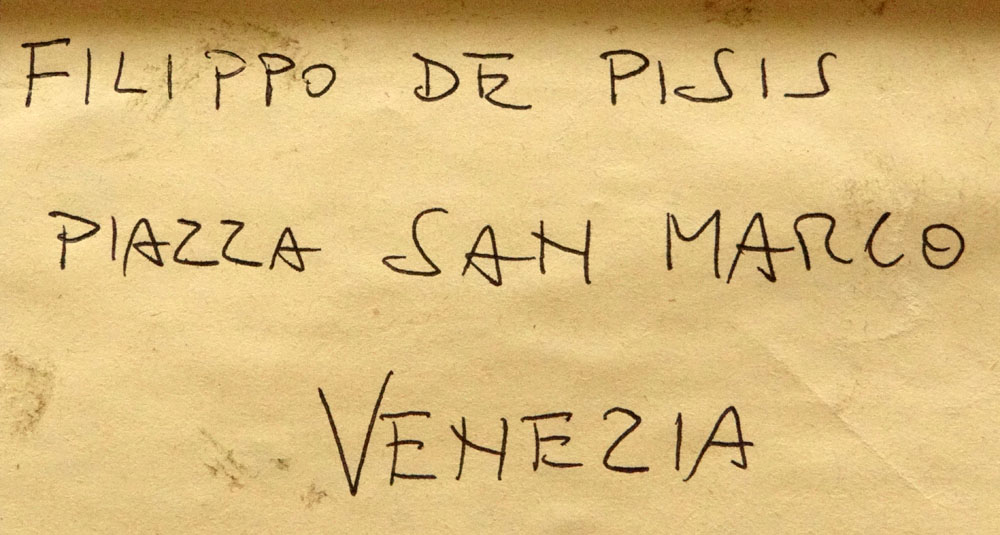 FILIPPO DE PISIS
PIAZZA SAN MARCO
VENEZIA